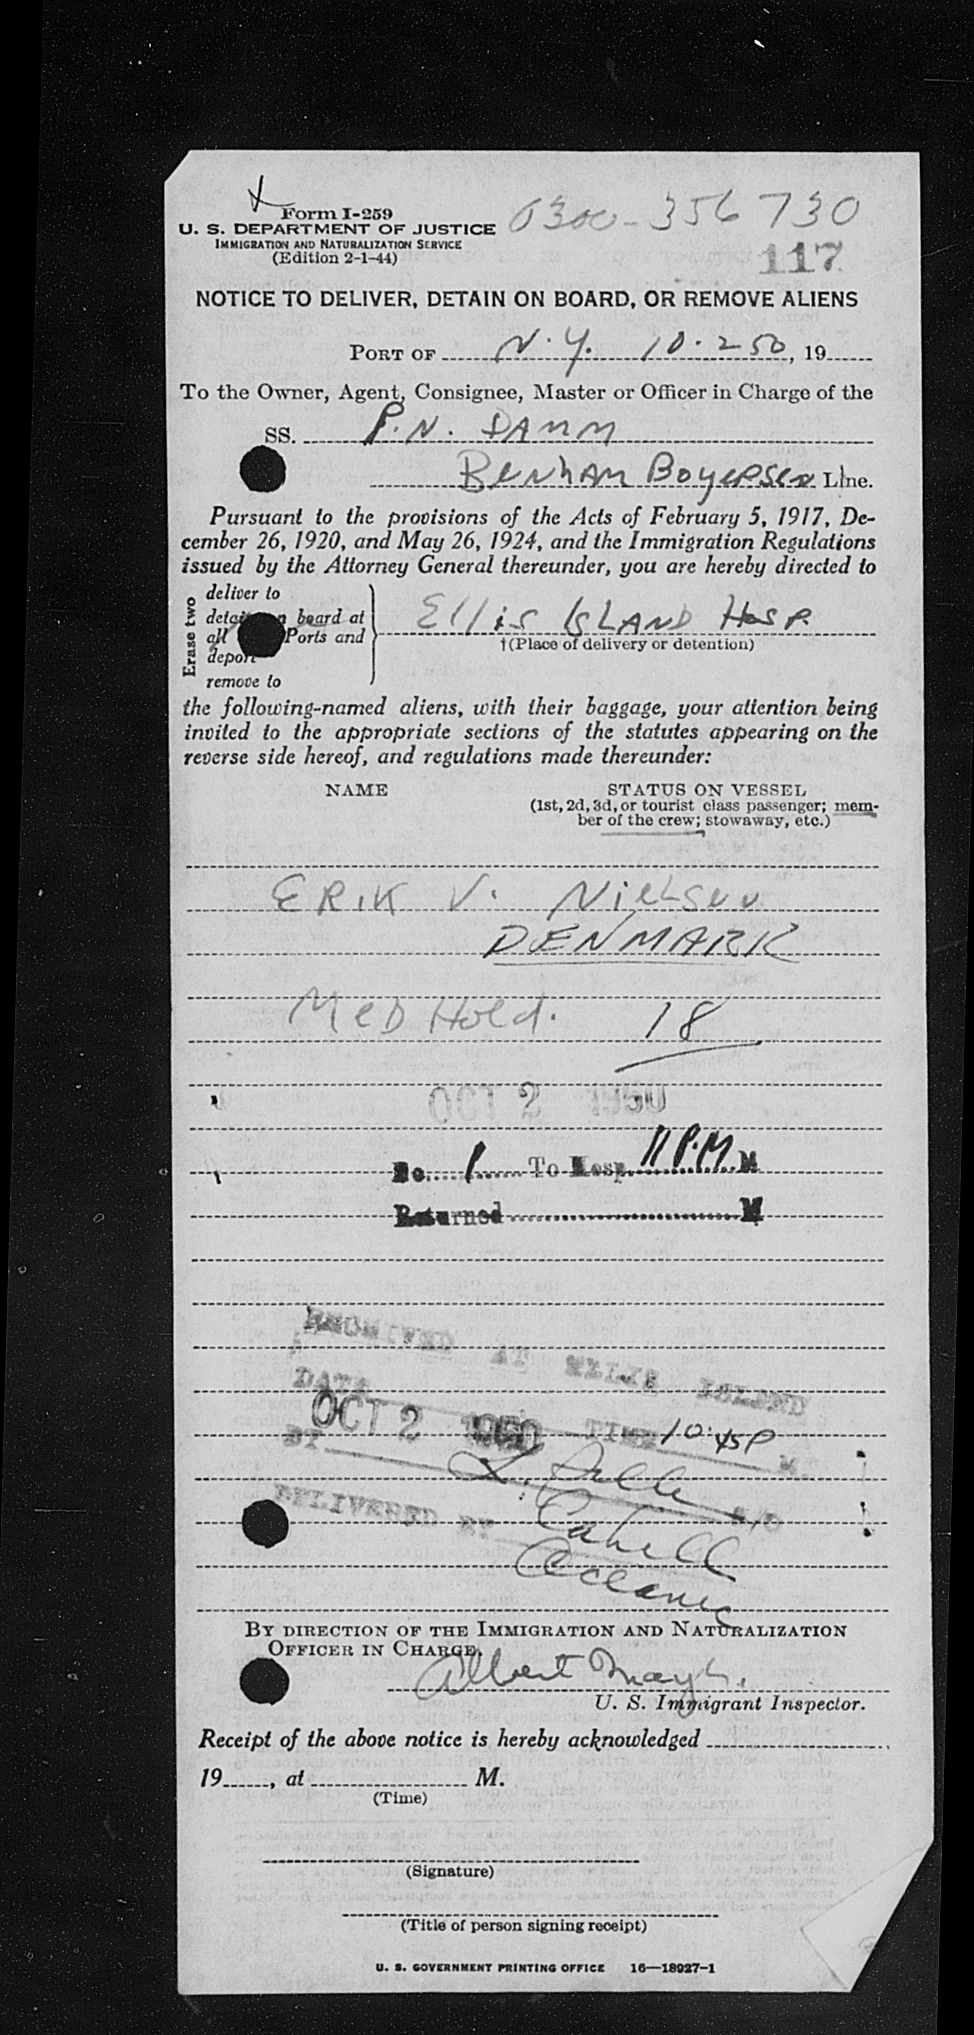 Form I-259
U. S. DEPARTMENT OF JUSTICE
IMMIGRATION AND NATURALIZATION SERVICE
(Edition 2-1-44)
0300-356 730
117
NOTICE TO DELIVER, DETAIN ON BOARD, OR REMOVE ALIENS
PORT OF N. Y. 10-2-50, 19
To the Owner, Agent, Consignee, Master or Officer in Charge of the
SS. P. N. DAMM
Line.
Pursuant to the provisions of the Acts of February 5, 1917, De-
cember 26, 1920, and May 26, 1924, and the Immigration Regulations
issued by the Attorney General thereunder, you are hereby directed to
Erase two
deliver to
board at
all Ports and
deport
remove to
Ellis ISLAND Hosp.
†(Place of delivery or detention)
the following-named aliens, with their baggage, your attention being
invited to the appropriate sections of the statutes appearing on the
reverse side hereof, and regulations made thereunder:
NAME
STATUS ON VESSEL
(1st, 2d, 3d, or tourist class passenger; mem-
ber of the crew; stowaway, etc.)
ERIK V. NIELSEN
DENMARK
MED Hold. 18
OCT 2 1950
No. 1 To Hosp. 11 P.M. M
Returned M
RECEIVED AT ELLIS ISLAND
DATE
OCT 2 1950 TIME 10:45P M.
BY
DELIVERED BY
Cahill
Oceanic
BY DIRECTION OF THE IMMIGRATION AND NATURALIZATION
OFFICER IN CHARGE,
Albert
U. S. Immigrant Inspector.
Receipt of the above notice is hereby acknowledged
19, at M.
(Time)
(Signature)
(Title of person signing receipt)
U. S. GOVERNMENT PRINTING OFFICE 16—18927-1